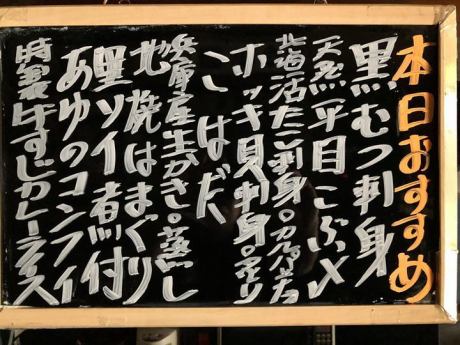 本日おすすめ
黒むつ刺身
天然平目こぶ〆
北海活たこ刺身。カルパッチョ
ホッキ貝刺身。炙り
こはだ
兵庫産生かき。蒸し
地焼はまぐり
黒ソイ煮付
あゆのコンフィ
特製牛すじカレーライス